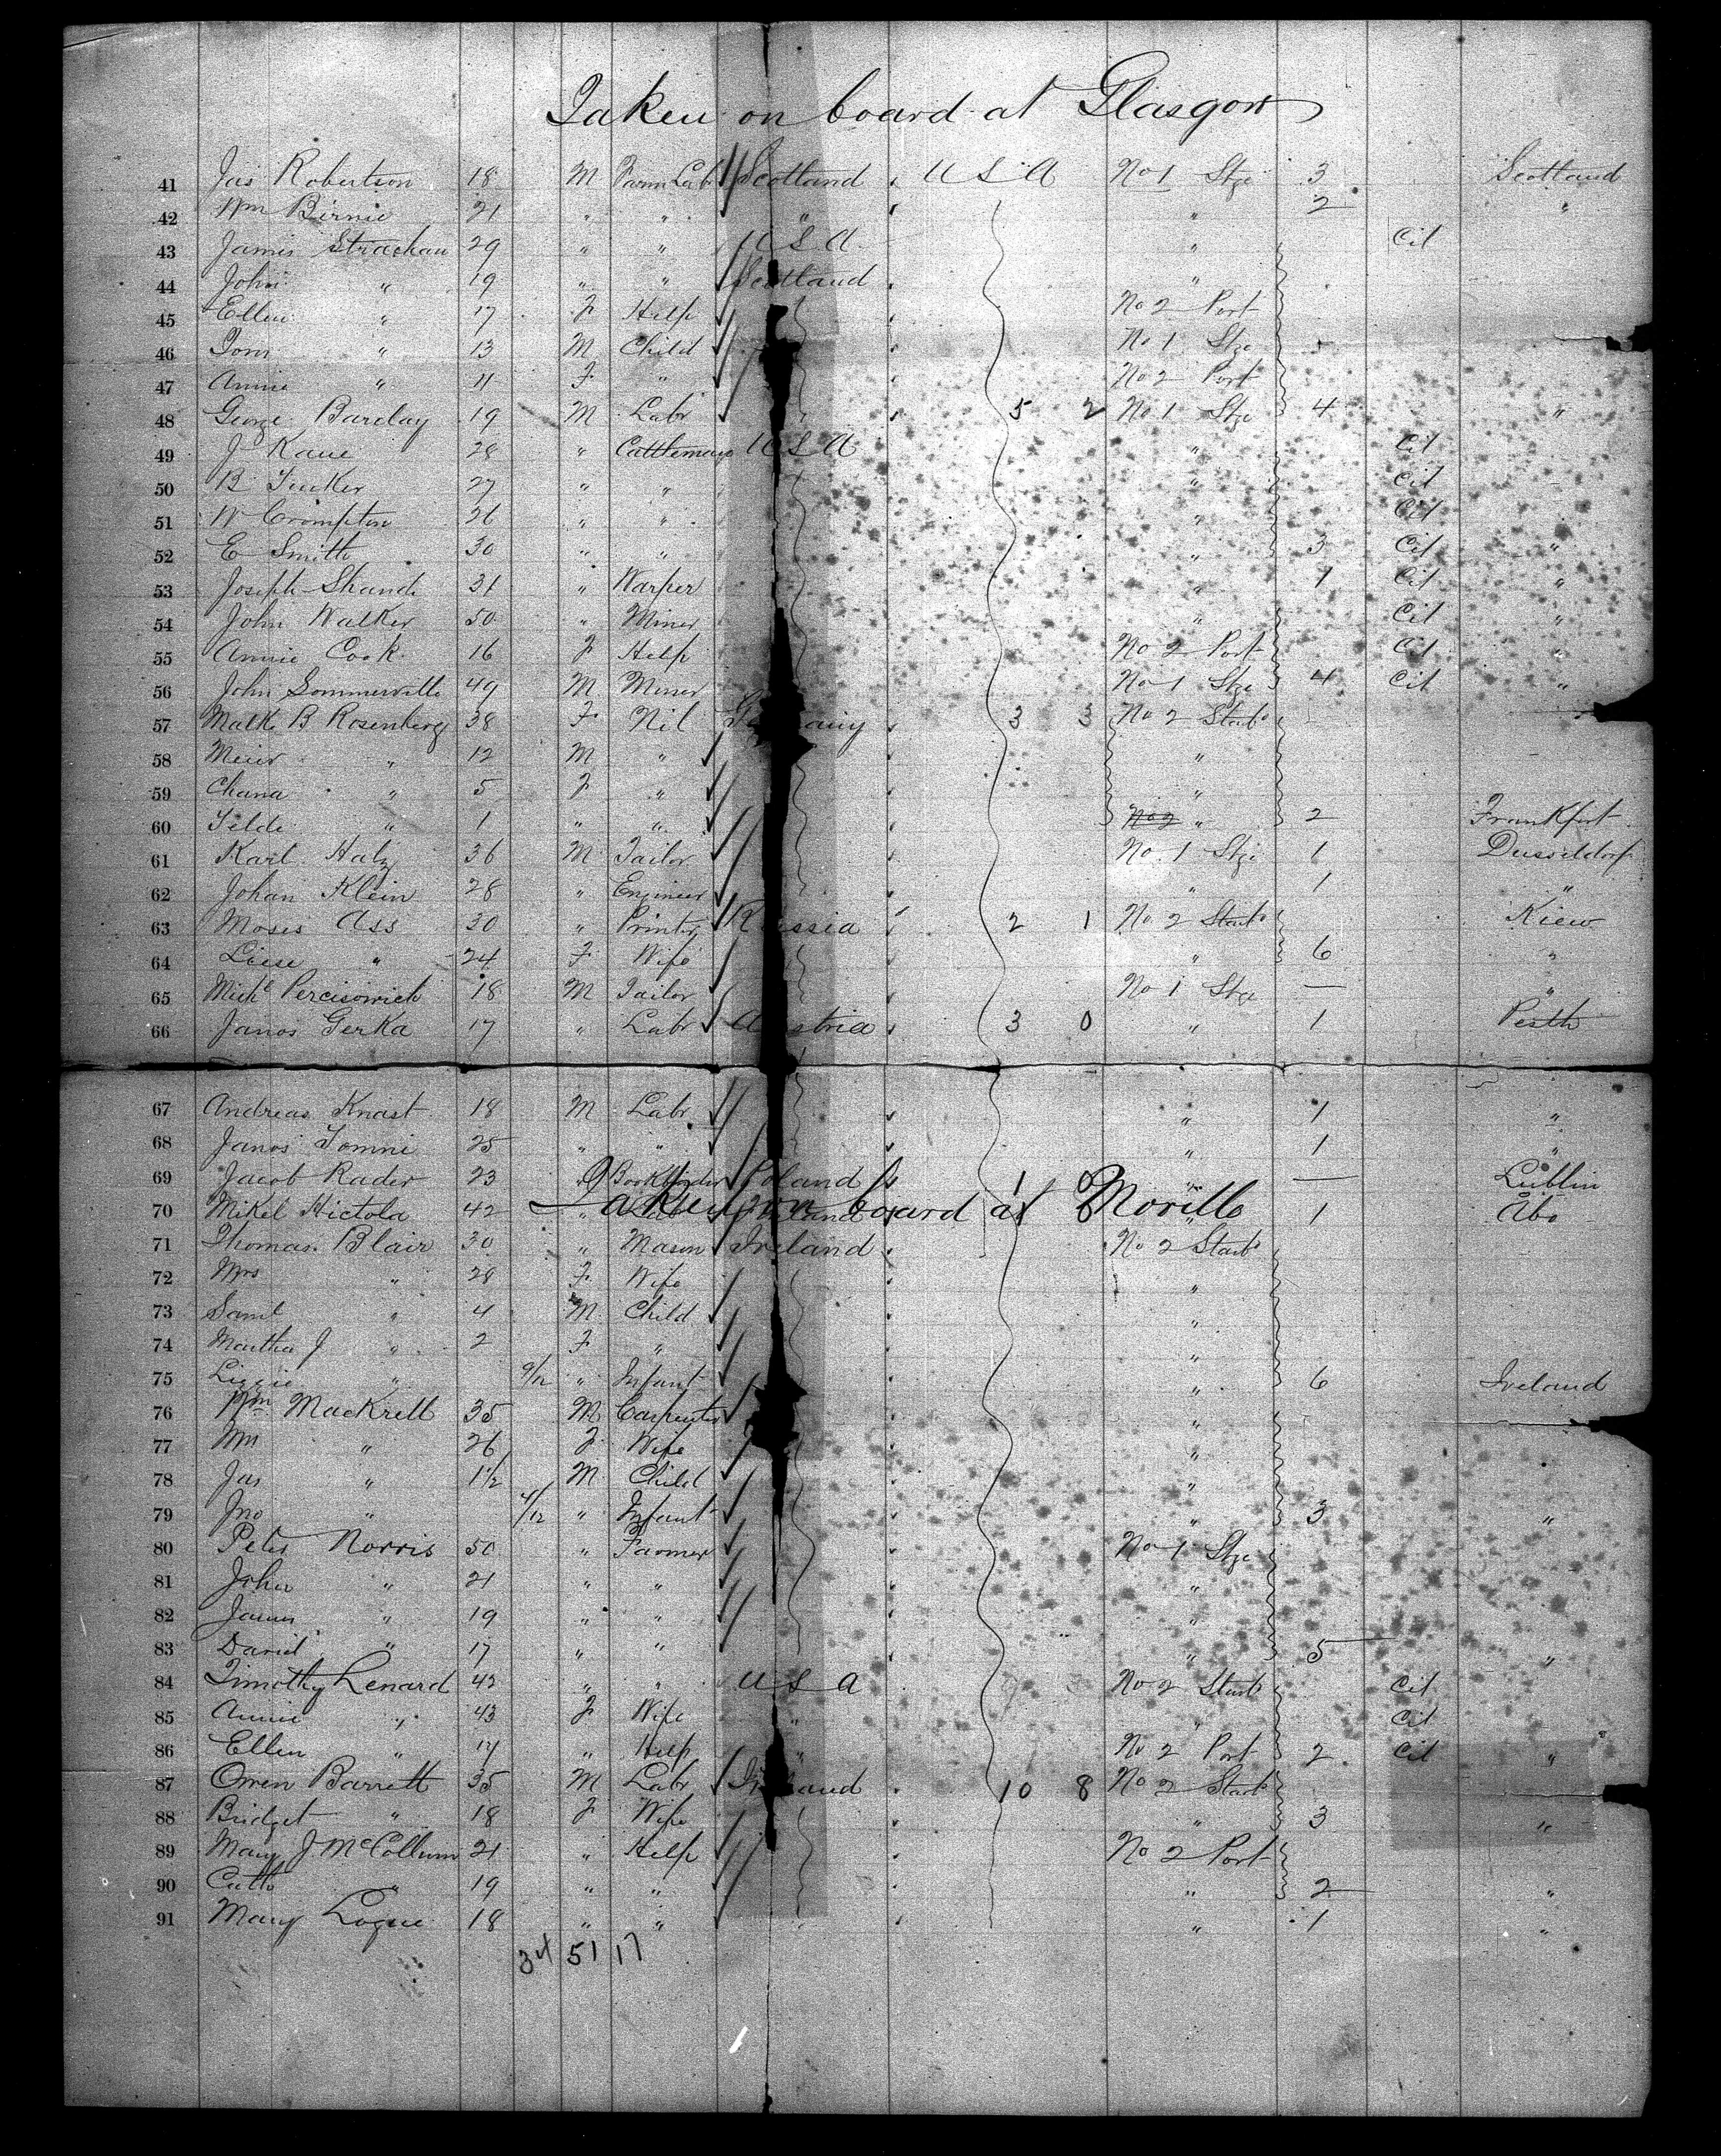 Taken on board at Glasgow
41 Jas Robertson 18 M Farm Labr Scotland U S A No 1 Stge 3 Scotland
42 Wm Birnie 21 " " " " 2 "
43 James Strachan 29 " " U S A " Cit
44 John " 19 " " Scotland "
45 Ellen " 17 F Help No 2 Port
46 Tom " 13 M Child No 1 Stge
47 Annie " 11 F " No 2 Port
48 George Barclay 19 M Labr " 5 2 No 1 Stge 4 "
49 J Kane 28 " Cattleman U S A " Cit
50 B Tucker 27 " " " Cit
51 W Crompton 26 " " " Cit
52 E Smith 30 " " " 3 Cit "
53 Joseph Shand 31 " Warper " 1 Cit "
54 John Walker 50 " Miner " Cit "
55 Annie Cook 16 F Help No 2 Port Cit "
56 John Sommerville 49 M Miner No 1 Stge 4 Cit "
57 Malk B Rosenberg 38 F Nil Germany 3 3 No 2 Starb
58 Meier " 12 M " "
59 Chana " 5 F " "
60 " 1 " " No 2 " 2 Frankfurt
61 Karl Hatz 36 M Tailor No. 1 Stge 1 Dusseldorf
62 Johan Klein 28 " Engineer " 1 "
63 Moses Ass 30 " Printer Russia 2 1 No 2 Starb Kiew
64 Liese " 24 F Wife " 6 "
65 Michl Percisowich 18 M Tailor No 1 Stge — "
66 Janos Gerka 17 " Labr Austria 3 0 " 1 Pesth
67 Andreas Knast 18 M Labr " 1 "
68 Janos Tomni 25 " " " 1 "
69 Jacob Rader 23 " Bookbinder Poland 1 0 " — Lublin
70 Mikel Hictola 42 " Labr Finland 1 0 " 1 Åbo
Taken on board at Moville
71 Thomas Blair 30 " Mason Ireland No 2 Starb
72 Mrs " 28 F Wife "
73 Saml " 4 M Child "
74 Martha J " 2 F " "
75 Lizzie " 9/12 " Infant " 6 Ireland
76 Wm Mackrell 35 M Carpenter "
77 Mrs " 26 F Wife "
78 Jas " 1½ M Child "
79 Jno " 4/12 " Infant " 3 "
80 Peter Norris 50 " Farmer No 1 Stge
81 John " 21 " " "
82 James " 19 " " "
83 David " 17 " " " 5 "
84 Timothy Lenard 42 " " U S A No 2 Starb Cit
85 Annie " 43 F Wife " " Cit
86 Ellen " 14 " Help " No 2 Port 2 Cit "
87 Owen Barrett 35 M Labr Ireland 10 8 No 2 Starb
88 Bridget " 18 F Wife " 3 "
89 Mary J McCollum 21 " Help No 2 Port
90 " 19 " " " 2 "
91 Mary Logue 18 " " " " 1 "
34 51 17